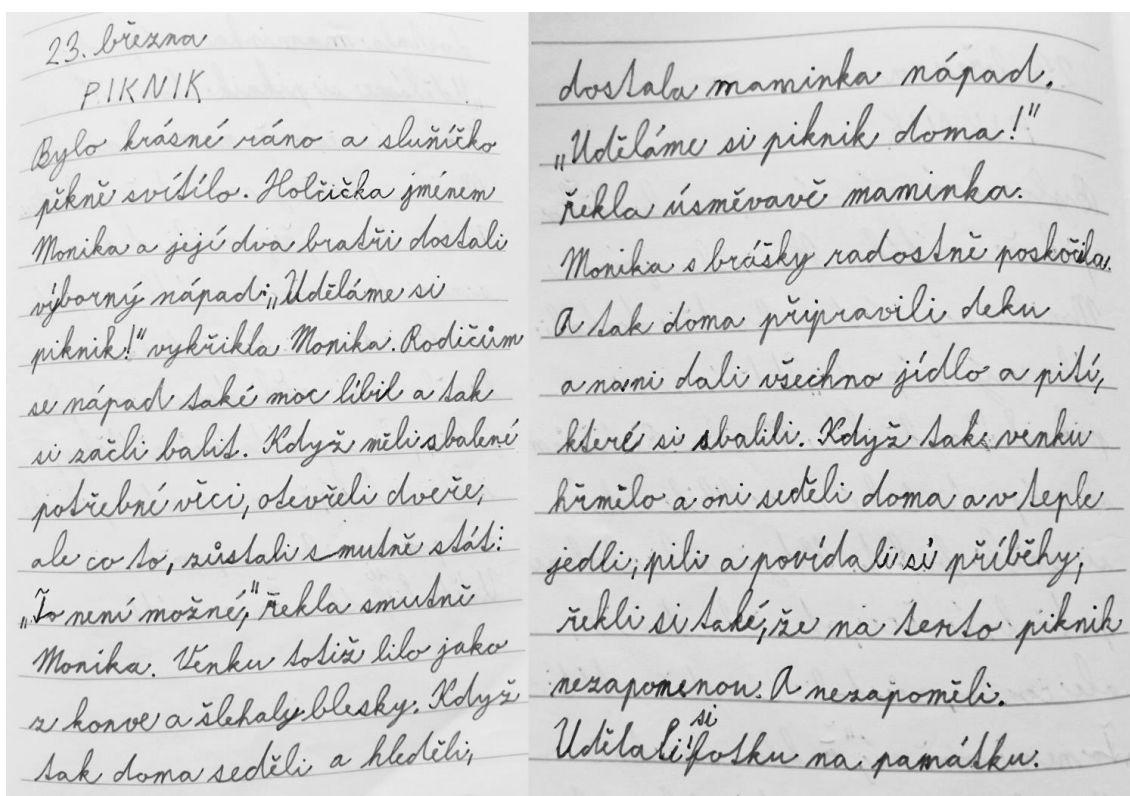 23. března
PIKNIK
Bylo krásné ráno a sluňíčko
pěkně svítílo. Holčička jménem
Monika a její dva bratři dostali
výborný nápad: „Uděláme si
piknik!" vykřikla Monika. Rodičům
se nápad také moc líbil a tak
si začli balit. Když měli sbalené
potřebné věci, otevřeli dveře,
ale co to, zůstali smutně stát:
„To není možné," řekla smutně
Monika. Venku totiž lilo jako
z konve a šlehaly blesky. Když
tak doma seděli a hleděli,
dostala maminka nápad.
„Uděláme si piknik doma!"
řekla úsměvavě maminka.
Monika s brášky radostně poskočila.
A tak doma připravili deku
a nani dali všechno jídlo a pití,
které si sbalili. Když tak venku
hřmělo a oni seděli doma a v teple
jedli, pili a povídali si příběhy,
řekli si také, že na tento piknik
nezapomenou. A nezapoměli.
Udělali si fotku na památku.